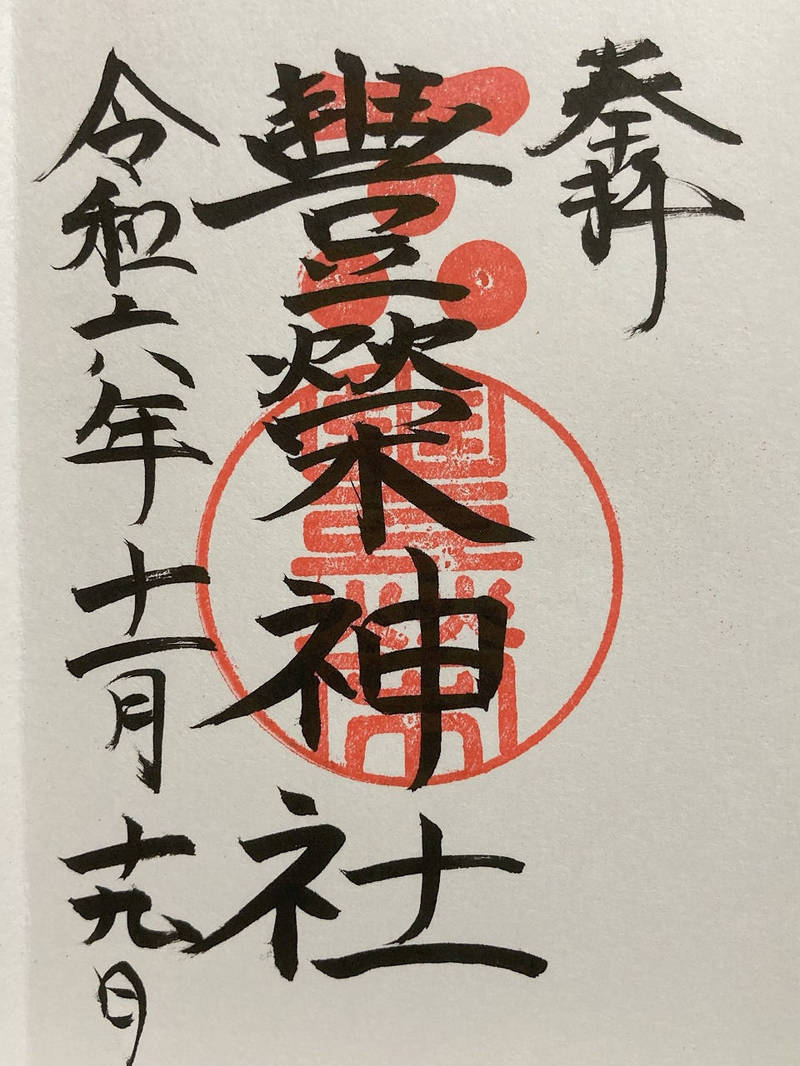 奉拝
豐榮神社
令和六年十一月十九日